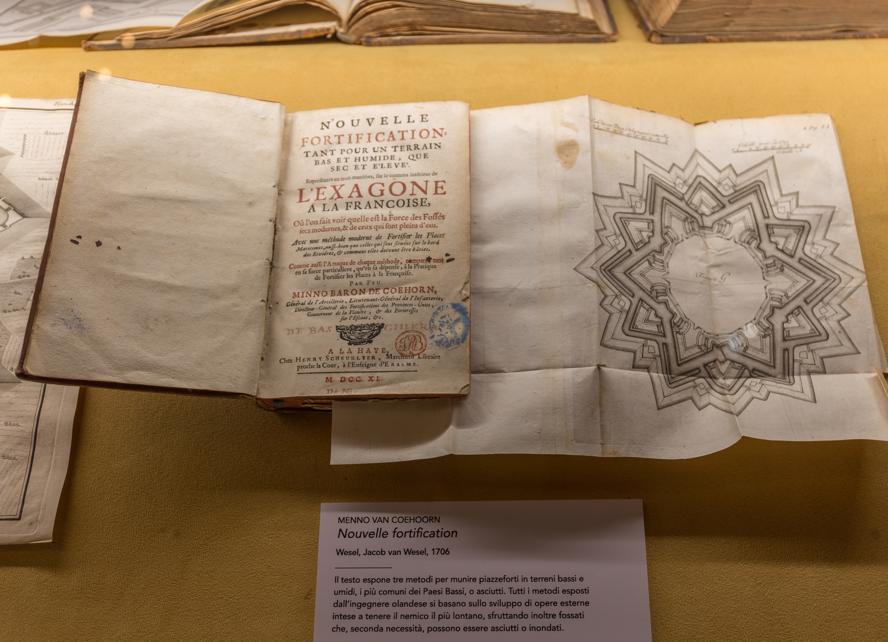 NOUVELLE
FORTIFICATION,
TANT POUR UN TERRAIN
BAS ET HUMIDE, QUE
SEC ET ELEVE'.
L'EXAGONE
A LA FRANCOISE,
Où l'on fait voir quelle est la Force des Fossés
secs modernes, & de ceux qui sont pleins d'eau.
Avec une méthode moderne de Fortifier les Places
Comme aussi l'Attaque de chaque méthode,
de Fortifier les Places à la Françoise.
PAR FEU
MINNO BARON DE COEHORN,
Général de l'Artillerie, Lieutenant-Général de l'Infanterie,
Directeur-Général des Fortifications des Provinces-Unies,
Gouverneur de la Flandre, & des Forteresses
sur l'Escaut, &c.
A LA HAYE,
Chez HENRY SCHEURLEER, Marchand Libraire
proche la Cour, à l'Enseigne d'ERASME.
M. DCC. XI.
MENNO VAN COEHOORN
Nouvelle fortification
Wesel, Jacob van Wesel, 1706
Il testo espone tre metodi per munire piazzeforti in terreni bassi e
umidi, i più comuni dei Paesi Bassi, o asciutti. Tutti i metodi esposti
dall'ingegnere olandese si basano sullo sviluppo di opere esterne
intese a tenere il nemico il più lontano, sfruttando inoltre fossati
che, seconda necessità, possono essere asciutti o inondati.